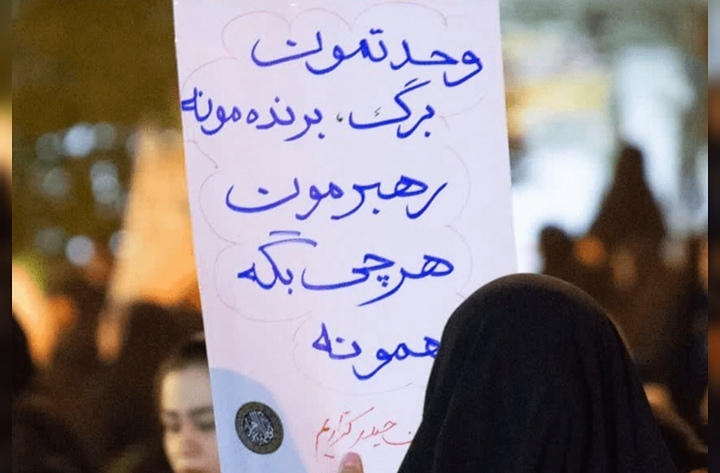 وحدتمون
برگ، برنده‌مونه
رهبرمون
هرچی بگه
همونه
حیدر کراریم